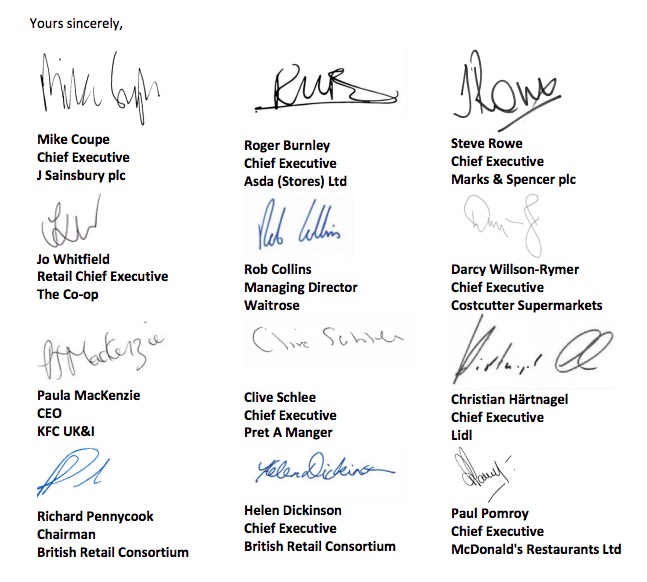 Yours sincerely,
Mike Coupe
Chief Executive
J Sainsbury plc
Roger Burnley
Chief Executive
Asda (Stores) Ltd
Steve Rowe
Chief Executive
Marks & Spencer plc
Jo Whitfield
Retail Chief Executive
The Co-op
Rob Collins
Rob Collins
Managing Director
Waitrose
Darcy Willson-Rymer
Chief Executive
Costcutter Supermarkets
PJMackenzie
Paula MacKenzie
CEO
KFC UK&I
Clive Schlee
Clive Schlee
Chief Executive
Pret A Manger
Christian Härtnagel
Chief Executive
Lidl
Richard Pennycook
Chairman
British Retail Consortium
Helen Dickinson
Helen Dickinson
Chief Executive
British Retail Consortium
Paul Pomroy
Chief Executive
McDonald's Restaurants Ltd